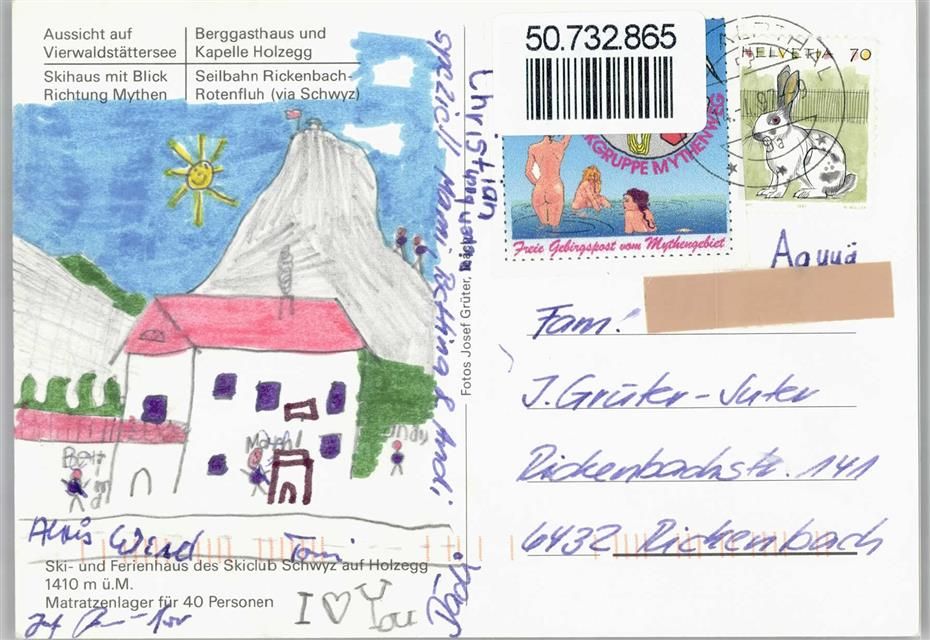 Aussicht auf
Vierwaldstättersee
Berggasthaus und
Kapelle Holzegg
Skihaus mit Blick
Richtung Mythen
Seilbahn Rickenbach-
Rotenfluh (via Schwyz)
Christian
Mami Bettina & Andi
Papi
Fotos Josef Grüter,
50.732.865
HELVETIA 70
KGRUPPE MYTHENWEG
Freie Gebirgspost vom Mythengebiet
Fam.
J. Grüter-Suter
Rickenbachstr. 141
6432 Rickenbach
Alois Toni
Ski- und Ferienhaus des Skiclub Schwyz auf Holzegg
1410 m ü.M.
Matratzenlager für 40 Personen
I ♡ You